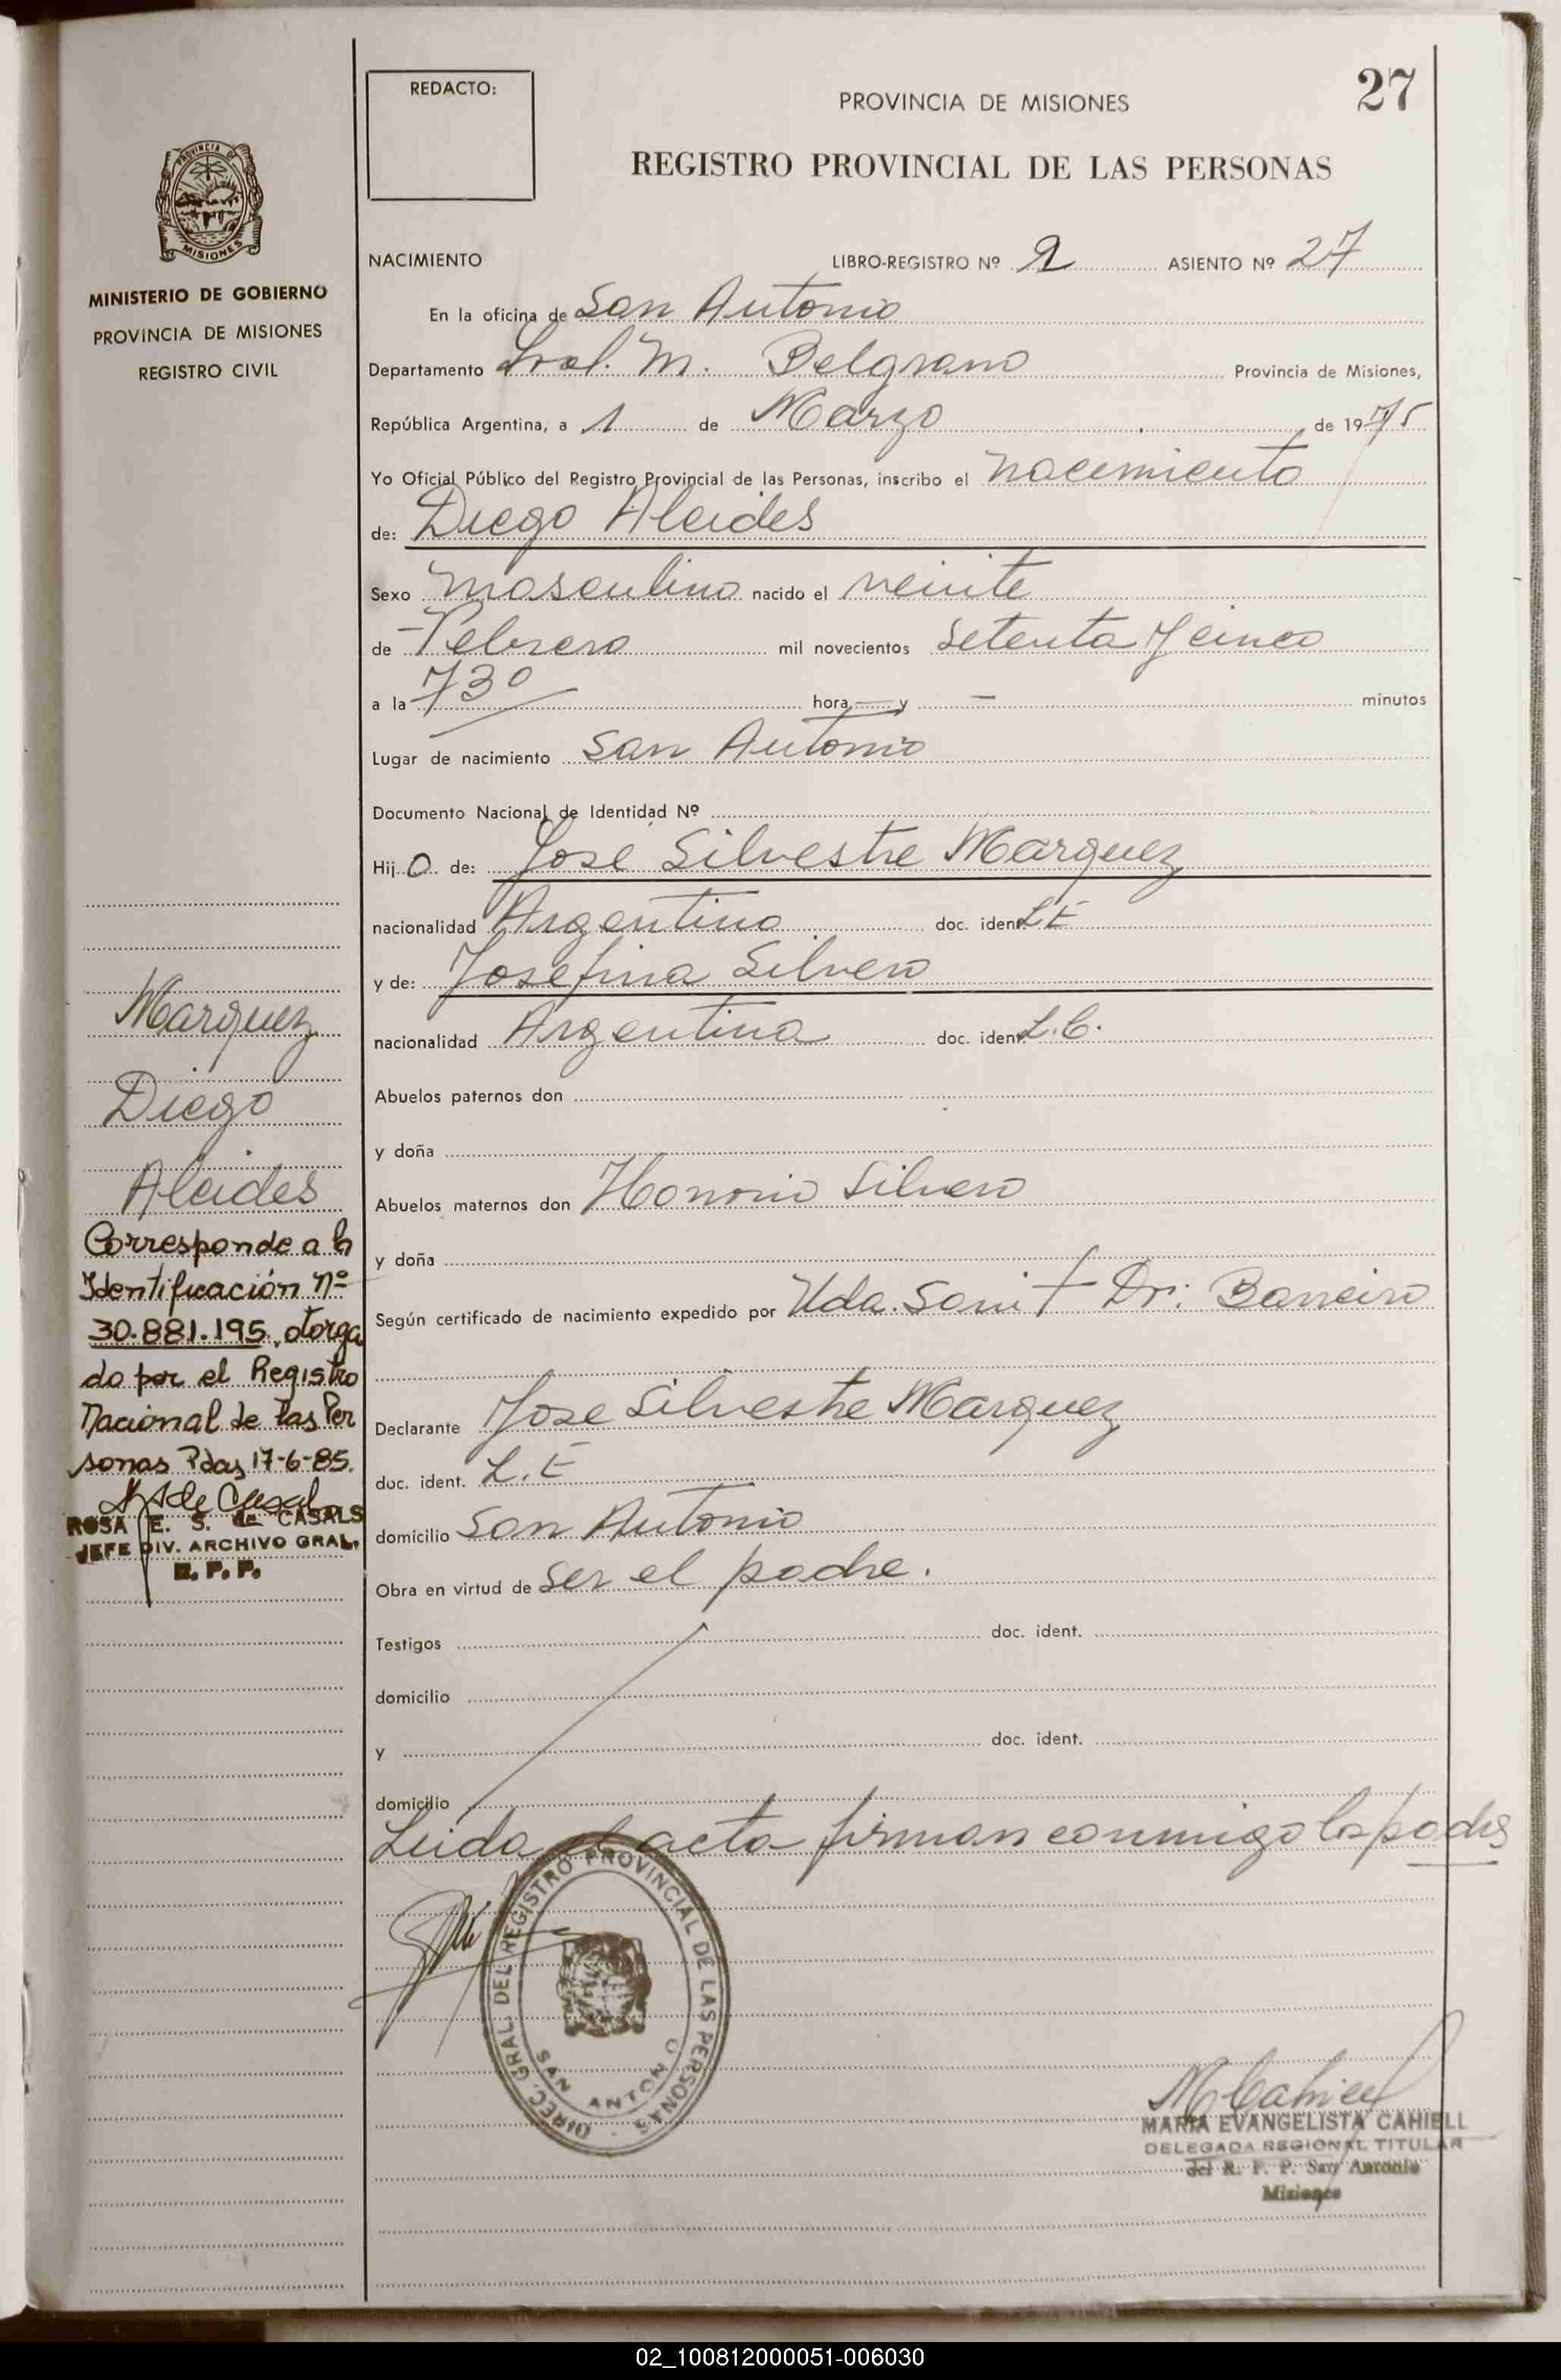 REDACTO:
PROVINCIA DE MISIONES
27
REGISTRO PROVINCIAL DE LAS PERSONAS
PROVINCIA DE
MISIONES
MINISTERIO DE GOBIERNO
PROVINCIA DE MISIONES
REGISTRO CIVIL
NACIMIENTO LIBRO-REGISTRO Nº 2 ASIENTO Nº 27
En la oficina de San Antonio
Departamento Gral. M. Belgrano Provincia de Misiones,
República Argentina, a 1 de Marzo de 1975
Yo Oficial Público del Registro Provincial de las Personas, inscribo el nacimiento
de: Diego Alcides
Sexo masculino nacido el veinte
de Febrero mil novecientos setenta y cinco
a la 7 30 hora — y — minutos
Lugar de nacimiento San Antonio
Documento Nacional de Identidad Nº
Hij o de: Jose Silvestre Marquez
nacionalidad Argentino doc. ident. L E
y de: Josefina Silvero
nacionalidad Argentina doc. ident. L.C.
Abuelos paternos don
y doña
Abuelos maternos don Honorio Silvero
y doña
Según certificado de nacimiento expedido por Uda. Sanit Dr: Barreiro
Declarante Jose Silvestre Marquez
doc. ident. L. E
domicilio San Antonio
Obra en virtud de ser el padre.
Testigos doc. ident.
domicilio
y doc. ident.
domicilio
Leida el acta firman conmigo los padres
Marquez
Diego
Alcides
Corresponde a la
Identificación nº
30.881.195, otorga
do por el Registro
Nacional de las Per
sonas Pdas 17-6-85.
ROSA E. S. de CASALS
JEFE DIV. ARCHIVO GRAL.
R. P. P.
DIREC. GRAL. DEL REGISTRO PROVINCIAL DE LAS PERSONAS
SAN ANTONIO
MARIA EVANGELISTA CAHIELL
DELEGADA REGIONAL TITULAR
del R. P. P. San Antonio
Misiones
02_100812000051-006030